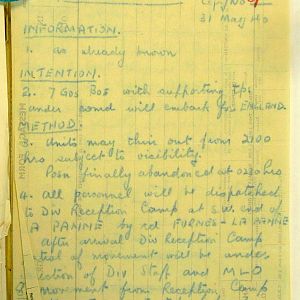 Copy No 9
31 May 40
INFORMATION.
1. as already known
INTENTION.
2. 7 Gds Bde with supporting tps
under comd will embark for ENGLAND.
METHOD.
3. Units may thin out from 2100
hrs subject to visibility.
Posn finally abandoned at 0230 hrs
4. All personnel will be dispatched
to Div Reception Camp at S.W. end of
A PANNE by rd FURNES - LA PANNE
after arrival Div Reception Camp
of movement will be under
ction of Div Staff and MLO
movement from Reception Camp